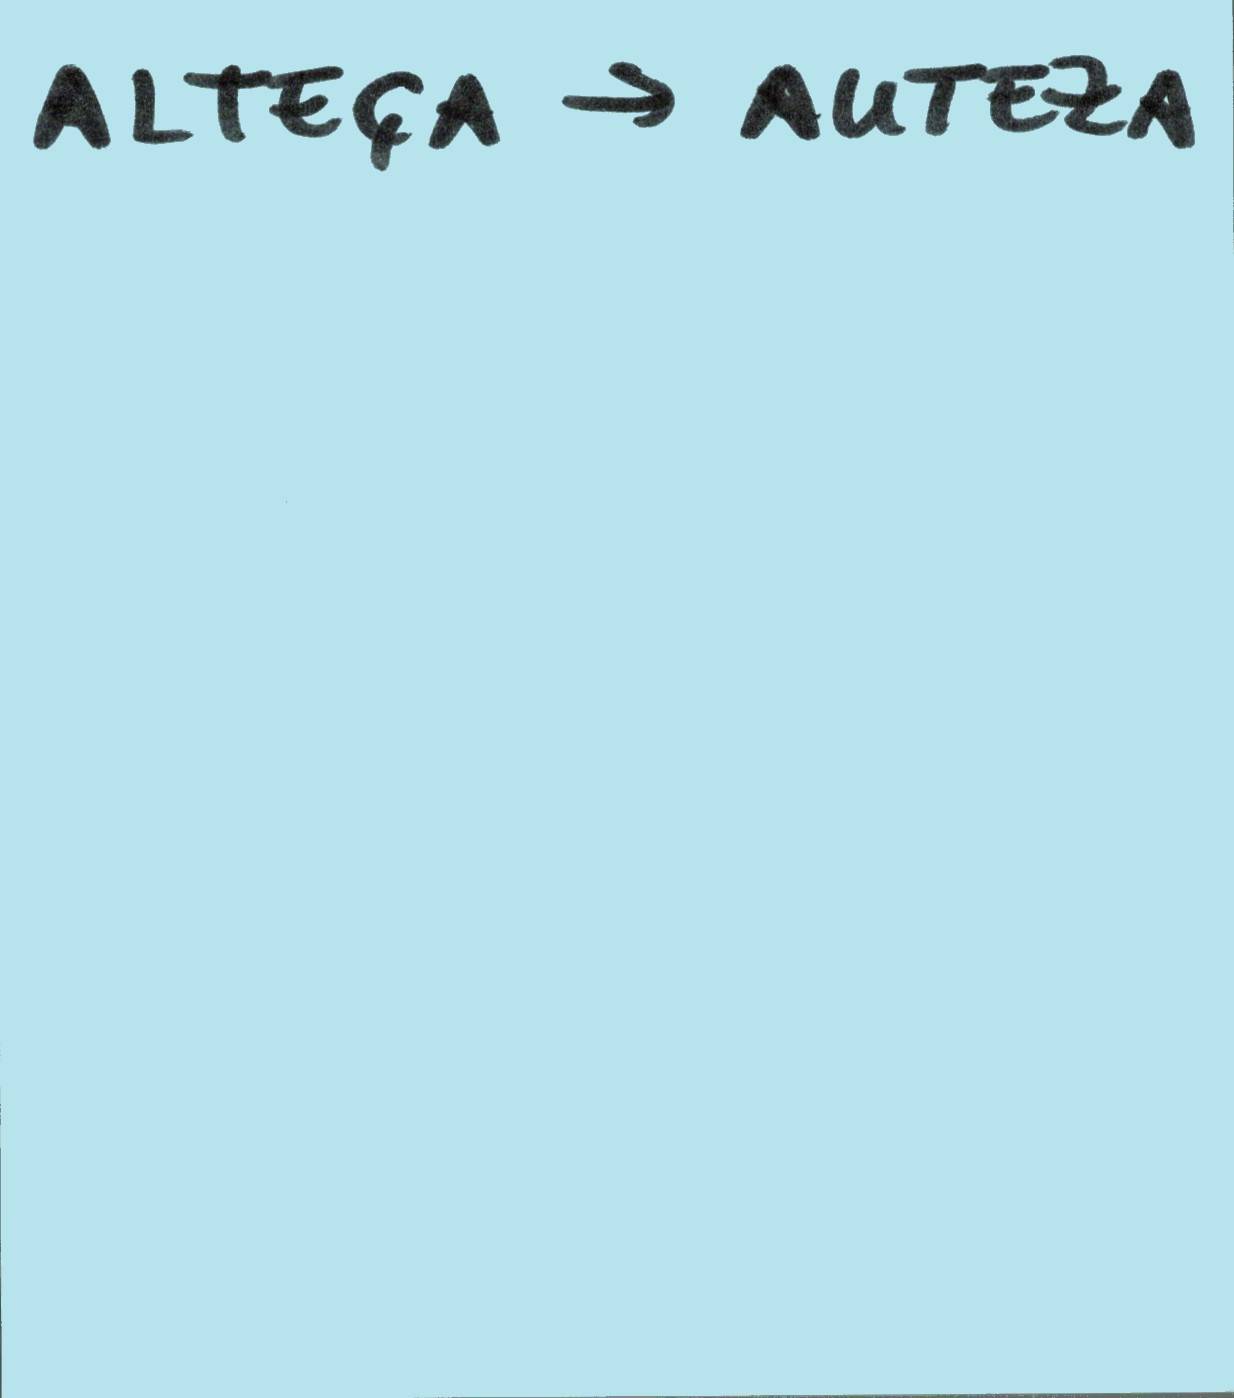 ALTEÇA → AUTEZA